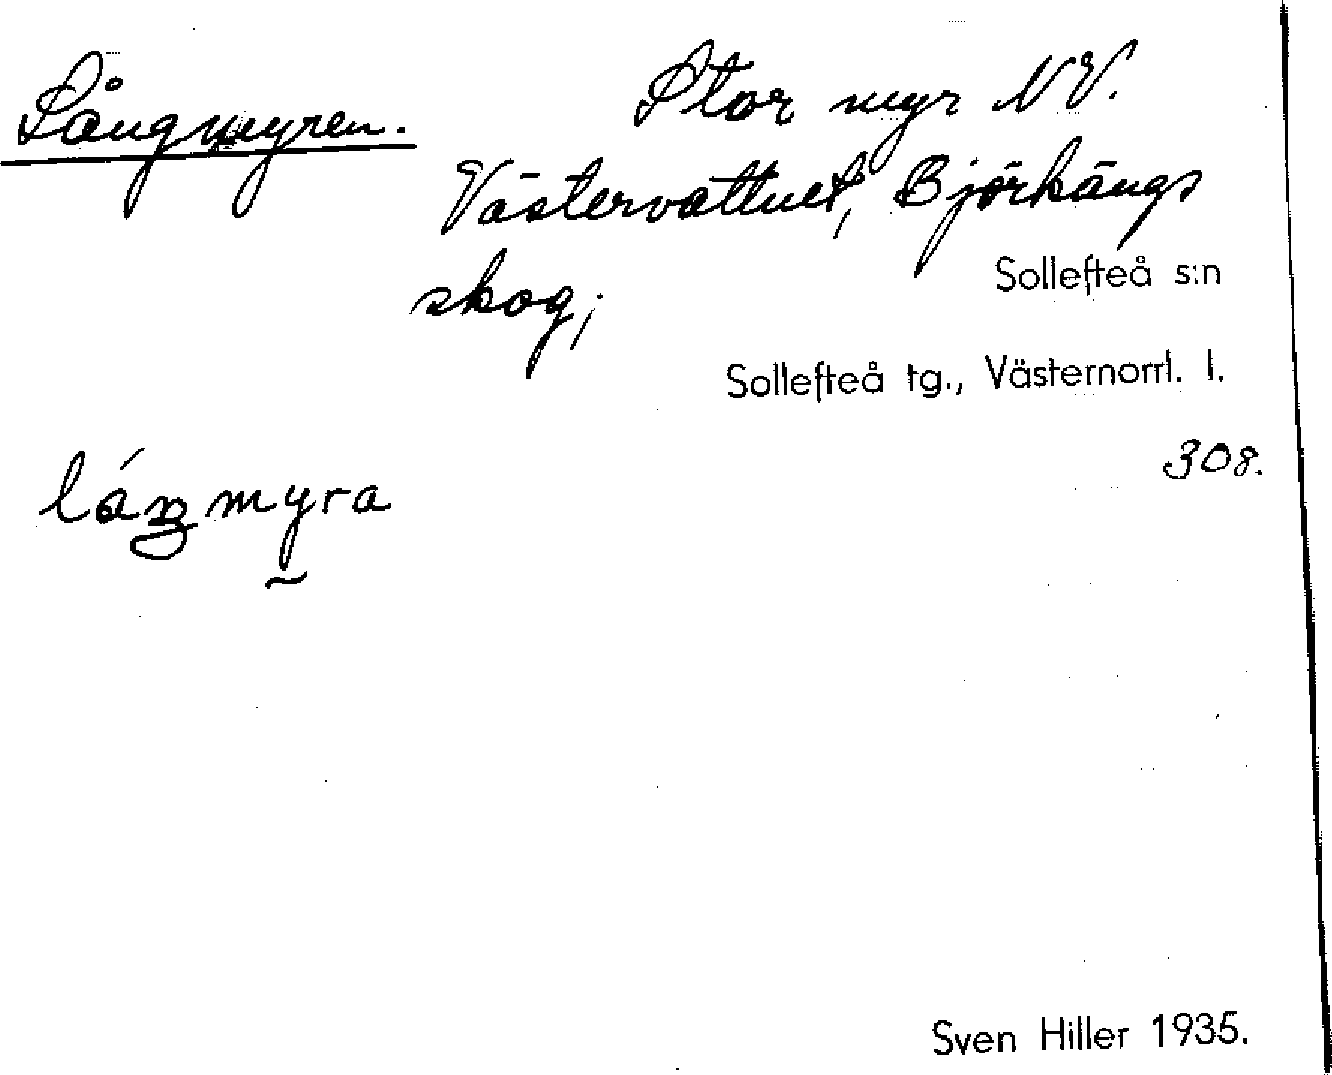 Långmyren. Stor myr NV.
Västervattnet, Björkängs
skog; Sollefteå s:n
Sollefteå tg., Västernorrl. l.
308.
myra
Sven Hiller 1935.